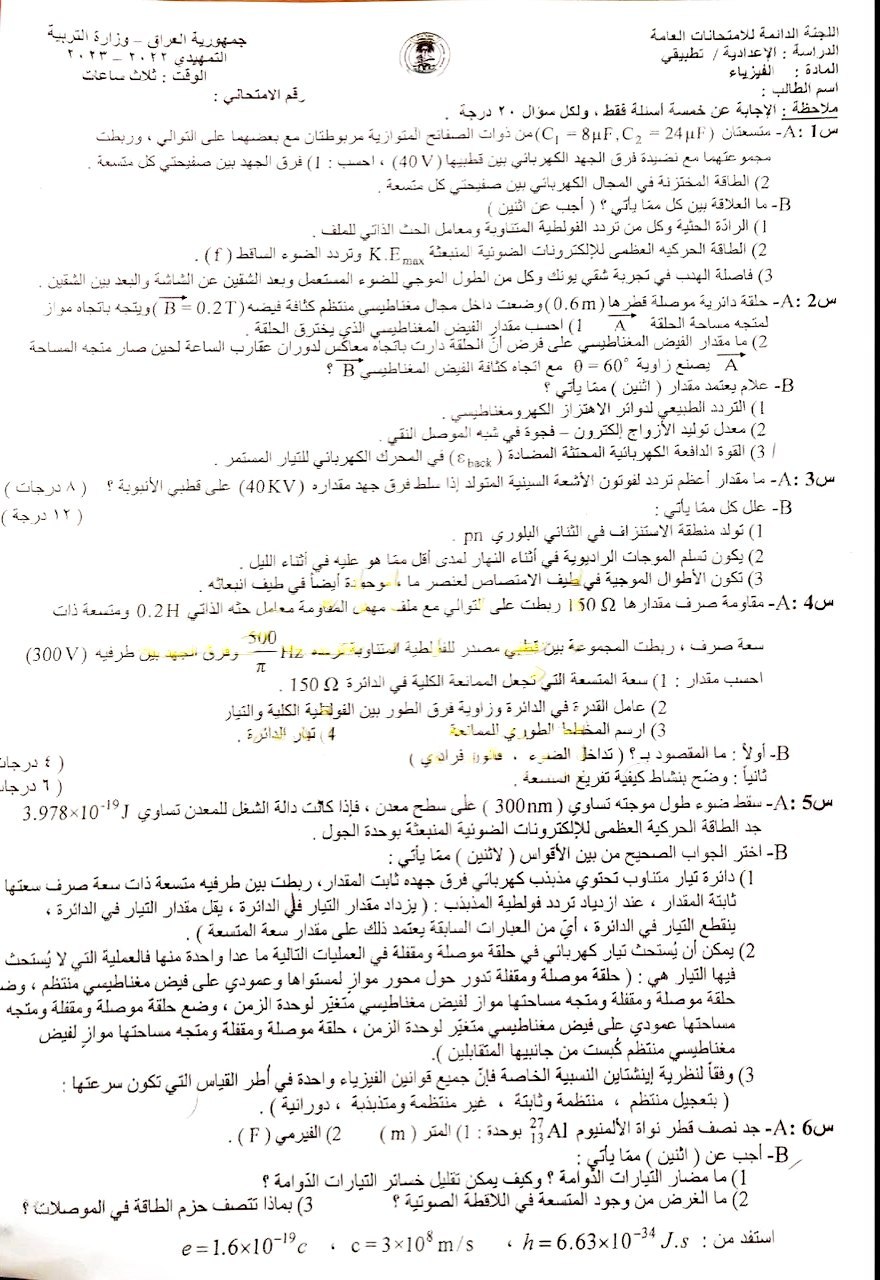 اللجنة الدائمة للامتحانات العامة
الدراسة : الإعدادية / تطبيقي
المادة : الفيزياء
اسم الطالب :
جمهورية العراق – وزارة التربية
التمهيدي ٢٠٢٢ – ٢٠٢٣
الوقت : ثلاث ساعات
رقم الامتحاني :
ملاحظة : الإجابة عن خمسة أسئلة فقط ، ولكل سؤال ٢٠ درجة .
س1: A- متسعتان (C₁ = 8μF, C₂ = 24μF) من ذوات الصفائح المتوازية مربوطتان مع بعضهما على التوالي ، وربطت
مجموعتهما مع نضيدة فرق الجهد الكهربائي بين قطبيها (40V) ، احسب : 1) فرق الجهد بين صفيحتي كل متسعة .
2) الطاقة المختزنة في المجال الكهربائي بين صفيحتي كل متسعة .
B- ما العلاقة بين كل ممّا يأتي ؟ ( أجب عن اثنين )
1) الرادّة الحثية وكل من تردد الفولطية المتناوبة ومعامل الحث الذاتي للملف .
2) الطاقة الحركيه العظمى للإلكترونات الضوئية المنبعثة K.Emax وتردد الضوء الساقط ( f ) .
3) فاصلة الهدب في تجربة شقي يونك وكل من الطول الموجي للضوء المستعمل وبعد الشقين عن الشاشة والبعد بين الشقين .
س2: A- حلقة دائرية موصلة قطرها (0.6m) وضعت داخل مجال مغناطيسي منتظم كثافة فيضه (B⃗ = 0.2T) ويتجه باتجاه مواز
لمتجه مساحة الحلقة A⃗ 1) احسب مقدار الفيض المغناطيسي الذي يخترق الحلقة .
2) ما مقدار الفيض المغناطيسي على فرض أنّ الحلقة دارت باتجاه معاكس لدوران عقارب الساعة لحين صار متجه المساحة
A⃗ يصنع زاوية θ = 60° مع اتجاه كثافة الفيض المغناطيسي B⃗ ؟
B- علام يعتمد مقدار ( اثنين ) ممّا يأتي ؟
1) التردد الطبيعي لدوائر الاهتزاز الكهرومغناطيسي .
2) معدل توليد الأزواج إلكترون – فجوة في شبه الموصل النقي .
3) القوة الدافعة الكهربائية المحتثة المضادة (εback) في المحرك الكهربائي للتيار المستمر .
س3: A- ما مقدار أعظم تردد لفوتون الأشعة السينية المتولد إذا سلط فرق جهد مقداره (40KV) على قطبي الأنبوبة ؟ ( ٨ درجات )
B- علل كل ممّا يأتي : ( ١٢ درجة )
1) تولد منطقة الاستنزاف في الثنائي البلوري pn .
2) يكون تسلم الموجات الراديوية في أثناء النهار لمدى أقل ممّا هو عليه في أثناء الليل .
3) تكون الأطوال الموجية في طيف الامتصاص لعنصر ما ، موجودة أيضاً في طيف انبعاثه .
س4: A- مقاومة صرف مقدارها 150 Ω ربطت على التوالي مع ملف مهمل المقاومة معامل حثه الذاتي 0.2H ومتسعة ذات
سعة صرف ، ربطت المجموعة بين قطبي مصدر للفولطية المتناوبة تردده 500/π Hz وفرق الجهد بين طرفيه (300V)
احسب مقدار : 1) سعة المتسعة التي تجعل الممانعة الكلية في الدائرة 150 Ω .
2) عامل القدرة في الدائرة وزاوية فرق الطور بين الفولطية الكلية والتيار
3) ارسم المخطط الطوري للممانعة 4) تيار الدائرة .
B- أولاً : ما المقصود بـ ؟ ( تداخل الضوء ، قانون فرادي ) ( ٤ درجات
ثانياً : وضّح بنشاط كيفية تفريغ المتسعة . ( ٦ درجات
س5: A- سقط ضوء طول موجته تساوي ( 300nm ) على سطح معدن ، فإذا كانت دالة الشغل للمعدن تساوي 3.978×10⁻¹⁹J
جد الطاقة الحركية العظمى للإلكترونات الضوئية المنبعثة بوحدة الجول .
B- اختر الجواب الصحيح من بين الأقواس ( لاثنين ) ممّا يأتي :
1) دائرة تيار متناوب تحتوي مذبذب كهربائي فرق جهده ثابت المقدار، ربطت بين طرفيه متسعة ذات سعة صرف سعتها
ثابتة المقدار ، عند ازدياد تردد فولطية المذبذب : ( يزداد مقدار التيار في الدائرة ، يقل مقدار التيار في الدائرة ،
ينقطع التيار في الدائرة ، أيّ من العبارات السابقة يعتمد ذلك على مقدار سعة المتسعة ) .
2) يمكن أن يُستحث تيار كهربائي في حلقة موصلة ومقفلة في العمليات التالية ما عدا واحدة منها فالعملية التي لا يُستحث
فيها التيار هي : ( حلقة موصلة ومقفلة تدور حول محور موازٍ لمستواها وعمودي على فيض مغناطيسي منتظم ، وضع
حلقة موصلة ومقفلة ومتجه مساحتها مواز لفيض مغناطيسي متغيّر لوحدة الزمن ، وضع حلقة موصلة ومقفلة ومتجه
مساحتها عمودي على فيض مغناطيسي متغيّر لوحدة الزمن ، حلقة موصلة ومقفلة ومتجه مساحتها موازٍ لفيض
مغناطيسي منتظم كُبست من جانبيها المتقابلين ).
3) وفقاً لنظرية إينشتاين النسبية الخاصة فإنّ جميع قوانين الفيزياء واحدة في أُطر القياس التي تكون سرعتها :
( بتعجيل منتظم ، منتظمة وثابتة ، غير منتظمة ومتذبذبة ، دورانية ) .
س6: A- جد نصف قطر نواة الألمنيوم ²⁷₁₃Al بوحدة : 1) المتر ( m ) 2) الفيرمي ( F ) .
B- أجب عن ( اثنين ) ممّا يأتي :
1) ما مضار التيارات الدّوامة ؟ وكيف يمكن تقليل خسائر التيارات الدّوامة ؟
2) ما الغرض من وجود المتسعة في اللاقطة الصوتية ؟ 3) بماذا تتصف حزم الطاقة في الموصلات ؟
استفد من : h = 6.63×10⁻³⁴ J.s ، c = 3×10⁸ m/s ، e = 1.6×10⁻¹⁹ c